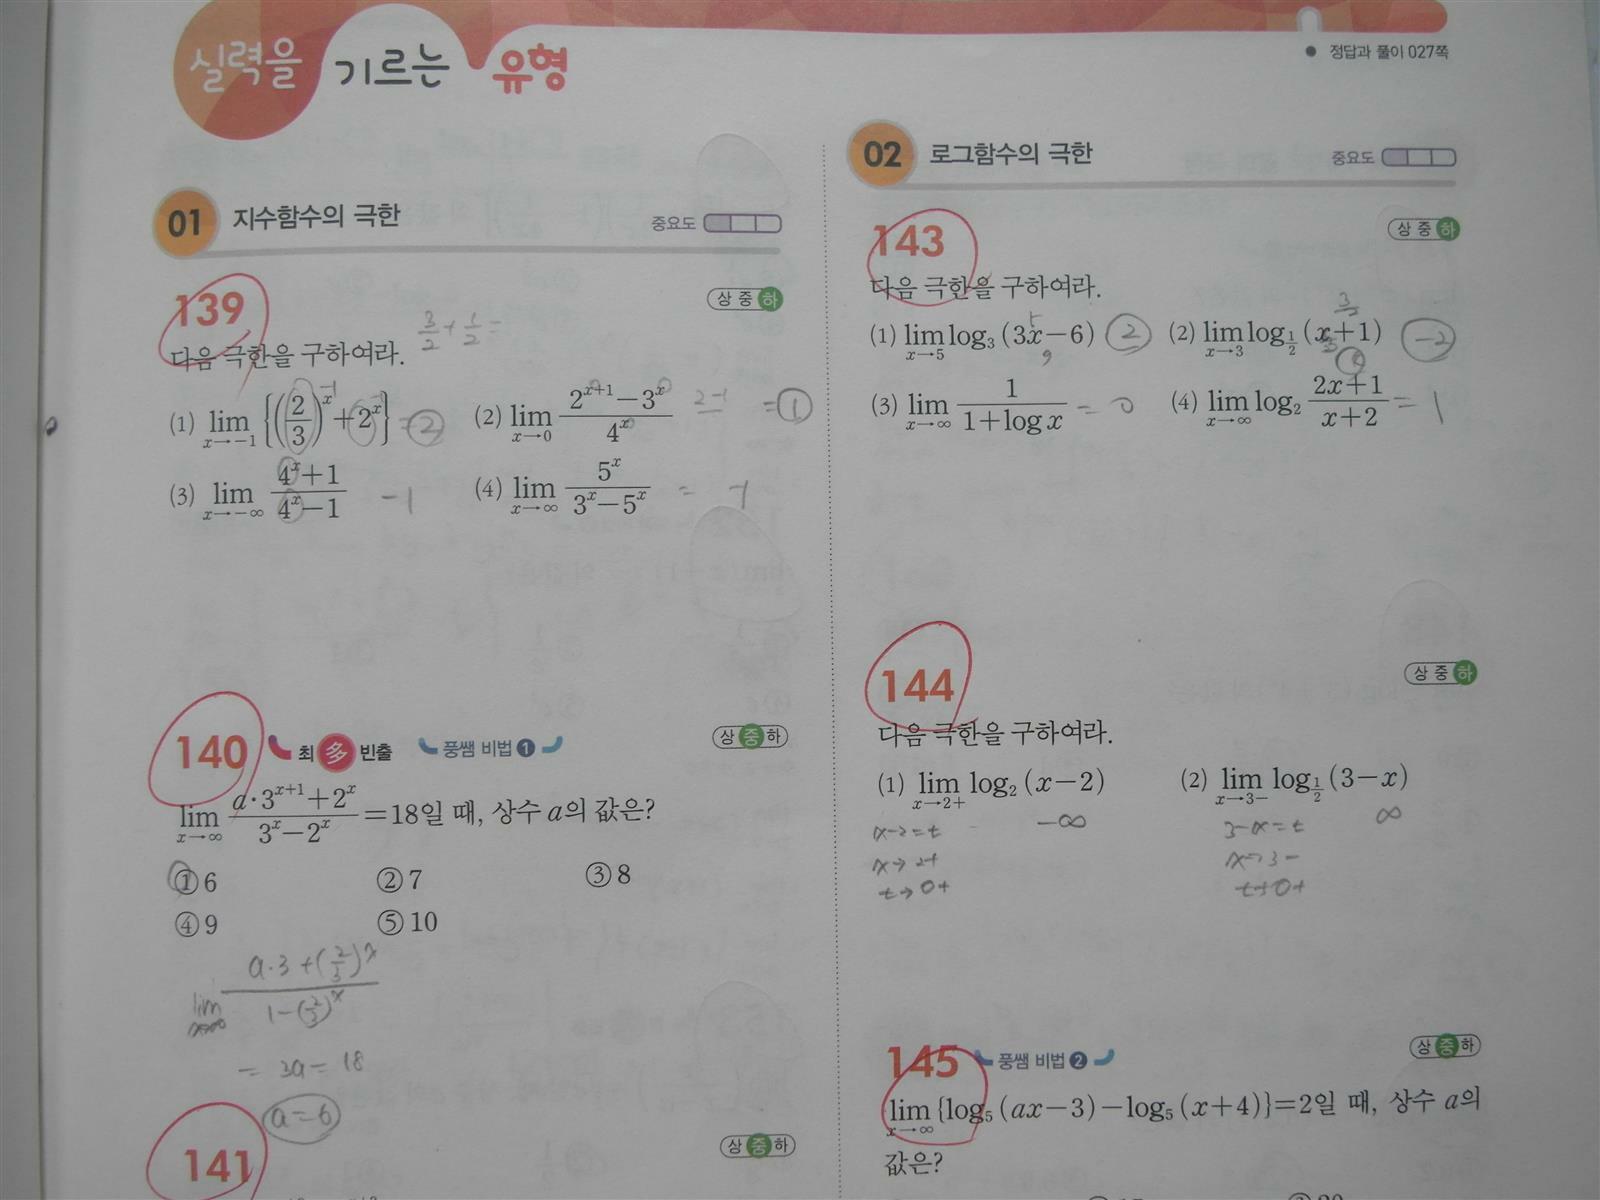 실력을 기르는 유형
정답과 풀이 027쪽
01 지수함수의 극한 중요도
139 상 중 하
3/2 + 1/2 =
다음 극한을 구하여라.
(1) lim x→-1 {(2/3)^x + 2^x} = 2
(2) lim x→0 (2^(x+1) - 3^x)/4^x 2-1 = 1
(3) lim x→-∞ (4^x+1)/(4^x-1) -1
(4) lim x→∞ 5^x/(3^x-5^x) = -1
140 최多빈출 풍쌤 비법 1 상 중 하
lim x→∞ (a·3^(x+1)+2^x)/(3^x-2^x) = 18일 때, 상수 a의 값은?
① 6 ② 7 ③ 8
④ 9 ⑤ 10
lim x→∞ (a·3+(2/3)^x)/(1-(2/3)^x)
= 3a = 18
a=6
141 상 중 하
02 로그함수의 극한 중요도
143 상 중 하
다음 극한을 구하여라.
(1) lim x→5 log₃(3x-6) 2
9
(2) lim x→3 log_(1/2)(x+1) -2
(3) lim x→∞ 1/(1+log x) = 0
(4) lim x→∞ log₂ (2x+1)/(x+2) = 1
144 상 중 하
다음 극한을 구하여라.
(1) lim x→2+ log₂(x-2)
-∞
x-2=t
x→2+
t→0+
(2) lim x→3- log_(1/2)(3-x)
∞
3-x=t
x→3-
t→0+
145 풍쌤 비법 2 상 중 하
lim x→∞ {log₅(ax-3)-log₅(x+4)}=2일 때, 상수 a의
값은?